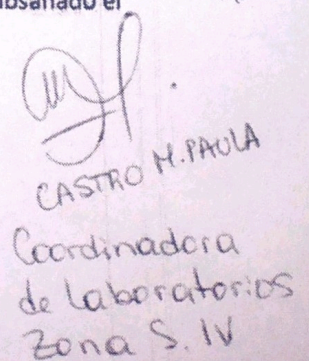 subsanado el
CASTRO M. PAULA
Coordinadora
de laboratorios
Zona S. IV